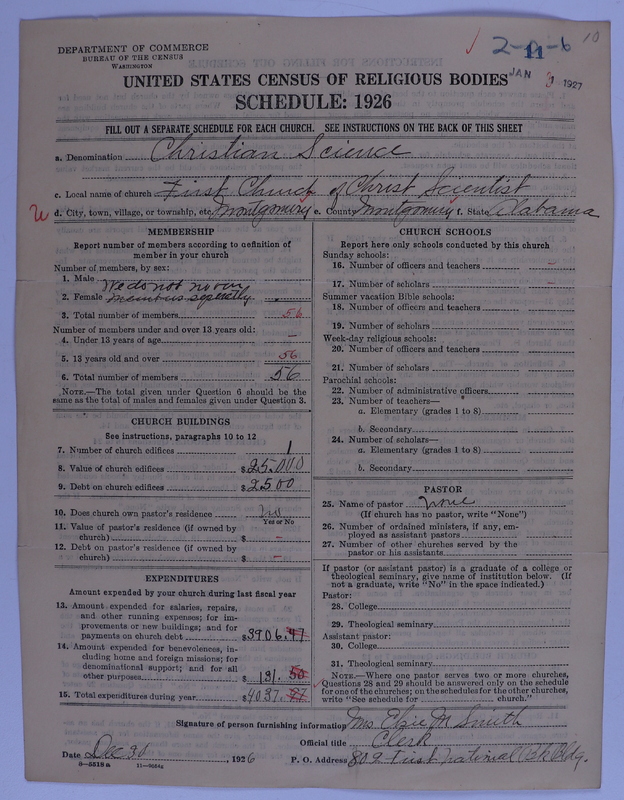 DEPARTMENT OF COMMERCE
BUREAU OF THE CENSUS
WASHINGTON
2-0-6
11
10
JAN 3 1927
UNITED STATES CENSUS OF RELIGIOUS BODIES
SCHEDULE: 1926
FILL OUT A SEPARATE SCHEDULE FOR EACH CHURCH. SEE INSTRUCTIONS ON THE BACK OF THIS SHEET
a. Denomination Christian Science
c. Local name of church First Church of Christ Scientist
d. City, town, village, or township, etc. Montgomery e. County Montgomery f. State Alabama
MEMBERSHIP
Report number of members according to definition of
member in your church
Number of members, by sex:
1. Male We do not
2. Female members seperatly
3. Total number of members 56
Number of members under and over 13 years old:
4. Under 13 years of age –
5. 13 years old and over 56
6. Total number of members 56
NOTE.—The total given under Question 6 should be the
same as the total of males and females given under Question 3.
CHURCH BUILDINGS
See instructions, paragraphs 10 to 12
7. Number of church edifices 1
8. Value of church edifices $25.000
9. Debt on church edifices $2500
10. Does church own pastor's residence no
Yes or No
11. Value of pastor's residence (if owned by
church) $ –
12. Debt on pastor's residence (if owned by
church) $ –
EXPENDITURES
Amount expended by your church during last fiscal year
13. Amount expended for salaries, repairs,
and other running expenses; for im-
provements or new buildings; and for
payments on church debt $3906.47
14. Amount expended for benevolences, in-
cluding home and foreign missions; for
denominational support; and for all
other purposes $131.50
15. Total expenditures during year $4037.97
CHURCH SCHOOLS
Report here only schools conducted by this church
Sunday schools:
16. Number of officers and teachers –
17. Number of scholars –
Summer vacation Bible schools:
18. Number of officers and teachers
19. Number of scholars
Week-day religious schools:
20. Number of officers and teachers
21. Number of scholars
Parochial schools:
22. Number of administrative officers
23. Number of teachers—
a. Elementary (grades 1 to 8)
b. Secondary
24. Number of scholars—
a. Elementary (grades 1 to 8)
b. Secondary
PASTOR
25. Name of pastor none
(If church has no pastor, write "None")
26. Number of ordained ministers, if any, em-
ployed as assistant pastors
27. Number of other churches served by the
pastor or his assistants
If pastor (or assistant pastor) is a graduate of a college or
theological seminary, give name of institution below. (If
not a graduate, write "No" in the space indicated.)
Pastor:
28. College
29. Theological seminary
Assistant pastor:
30. College
31. Theological seminary
NOTE.—Where one pastor serves two or more churches,
Questions 28 and 29 should be answered only on the schedule
for one of the churches; on the schedules for the other churches,
write "See schedule for church."
Signature of person furnishing information Mrs M Smith
Official title Clerk
Date Dec 30, 1926 P. O. Address 809 First National Bk Bldg.
8—5518 a 11—9034a